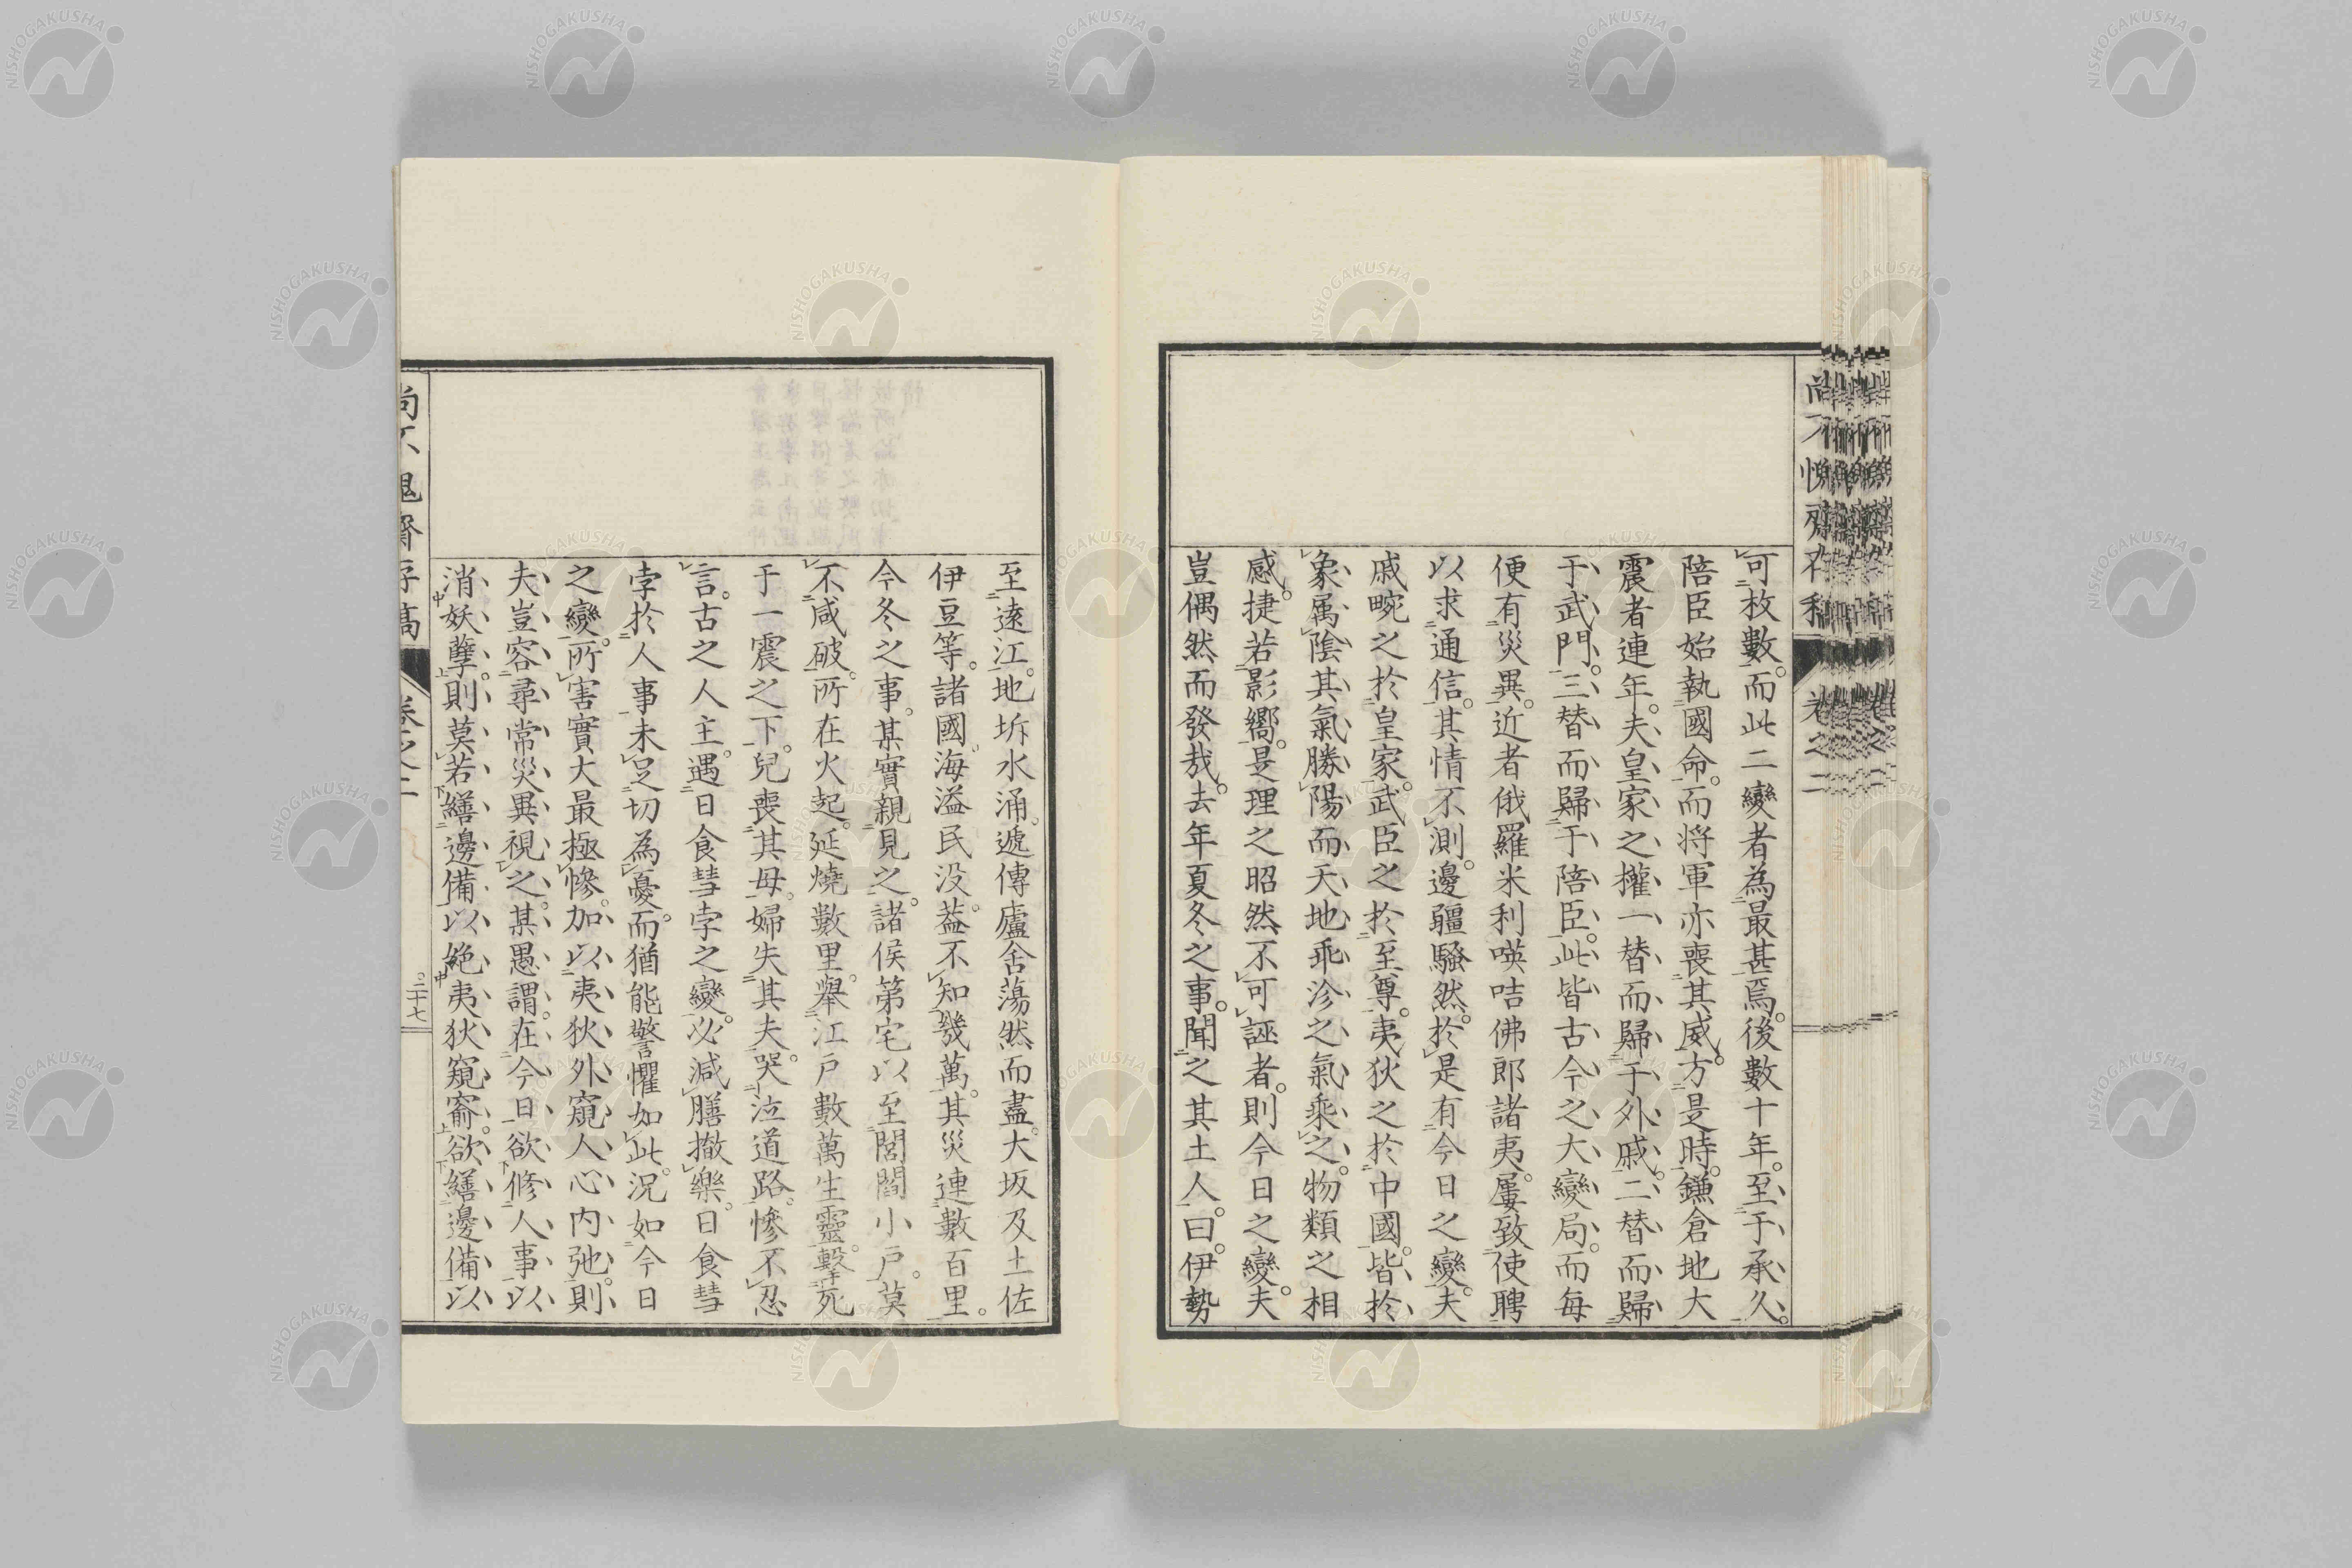 可枚數。而此二變者為最甚焉。後數十年。至于承久。
陪臣始執國命。而将軍亦喪其威。方是時。鎌倉地大
震者連年。夫皇家之權一替而歸于外戚。二替而歸
于武門。三替而歸于陪臣。此皆古今之大變局。而每
便有災異。近者俄羅米利㖽咭佛郎諸夷。屢致使聘
以求通信。其情不測。邊疆騷然。於是有今日之變。夫
戚畹之於皇家。武臣之於至尊。夷狄之於中國。皆於
象属陰。其氣勝陽。而天地乖沴之氣乘之。物類之相
感。捷若影嚮。是理之昭然。不可誣者。則今日之變。夫
豈偶然而發哉。去年夏冬之事。聞之其土人。曰。伊勢
至遠江。地坼水涌。遞傳廬舍蕩然而盡。大坂及土佐
伊豆等。諸國海溢民没。葢不知幾萬。其災連數百里。
今冬之事。某實親見之。諸侯第宅以至閭閻小戸。莫
不咸破。所在火起。延燒數里。舉江戸數萬生靈。擊死
于一震之下。兒喪其母。婦失其夫。哭泣道路。慘不忍
言。古之人主。遇日食彗孛之變。必減膳撤樂。日食彗
孛於人事未足切為憂。而猶能警懼如此。況如今日
之變。所害實大最極慘。加以夷狄外窺人心内弛。則
夫豈容尋常災異視之。某愚謂。在今日欲修人事以
消妖孽。則莫若繕邊備以絶夷狄窺窬。欲繕邊備以
尚不愧齋存稿
卷之二
三十七
卷之二
NISHOGAKUSHA